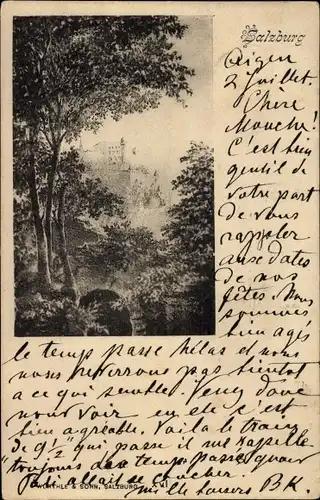 Salzburg
Aigen
2 Juillet.
Chère
Mouche!
C'est bien
gentil de
votre part
de vous
rappeler
aux dates
de nos
fêtes. Nous
sommes
bien agés
le temps passe hélas et nous
nous reverrons pas bientot
a ce qui semble. Venez donc
nous voir en ete c'est
bien agréable. Voila le train
de 9½ qui passe il me rapelle
toujours du temps passe quand
j'allais coucher.
WÜRTHLE & SOHN, SALZBURG
mille baisers BK.